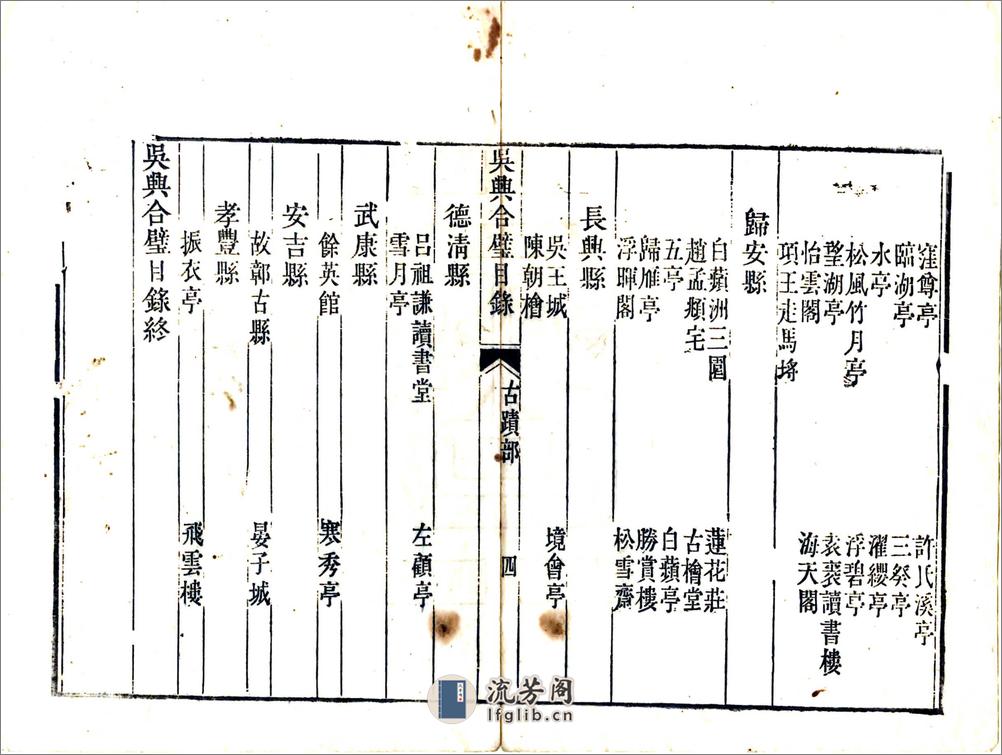 窪尊亭　許氏溪亭
臨湖亭　三癸亭
水亭　濯纓亭
松風竹月亭　浮碧亭
望湖亭　袁裴讀書樓
怡雲閣　海天閣
項王走馬埒
歸安縣
白蘋洲三園　蓮花莊
趙孟頫宅　古檜堂
五亭　白蘋亭
歸雁亭　勝賞樓
浮暉閣　松雪齋
長興縣
吳王城　境會亭
陳朝檜
吳興合璧目錄　古蹟部　四
德清縣
呂祖謙讀書堂　左顧亭
雪月亭
武康縣
餘英館　寒秀亭
安吉縣
故鄣古縣　晏子城
孝豐縣
振衣亭　飛雲樓
吳興合璧目錄終
流芳閣
lfglib.cn